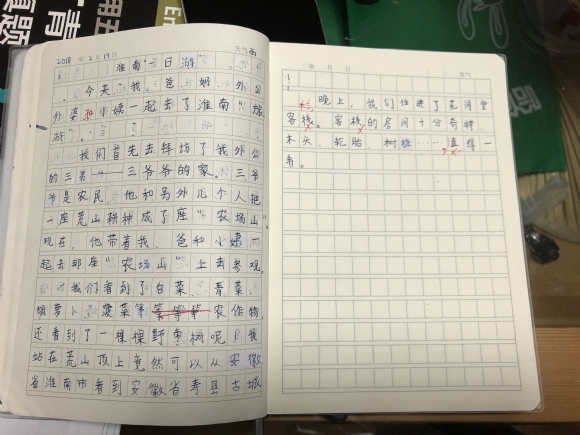 2018年2月19日 天气雨
淮南一日游
今天,我、爸、妈、外公
外婆和小姨一起去了淮南“旅
游”。
我们首先去拜访了我外公
的三弟——三爷爷的家。三爷
爷是农民,他和另外几个人把
一座荒山耕种成了座“农场山”
现在,他带着我、爸和小姨一
起去那座“农场山”上去参观,
我们看到了白菜、青菜、
胡萝卜、菠菜等等等等农作物,
还看到了一棵棵野枣树呢!我
站在荒山顶上竟然可以从安徽
省淮南市看到安徽省寿县古城
年 月 日 天气
!
栈晚上,我们住进了花间堂
客栈。客栈的房间十分奇特,
木头、轮胎、树桩……,值得一
看。